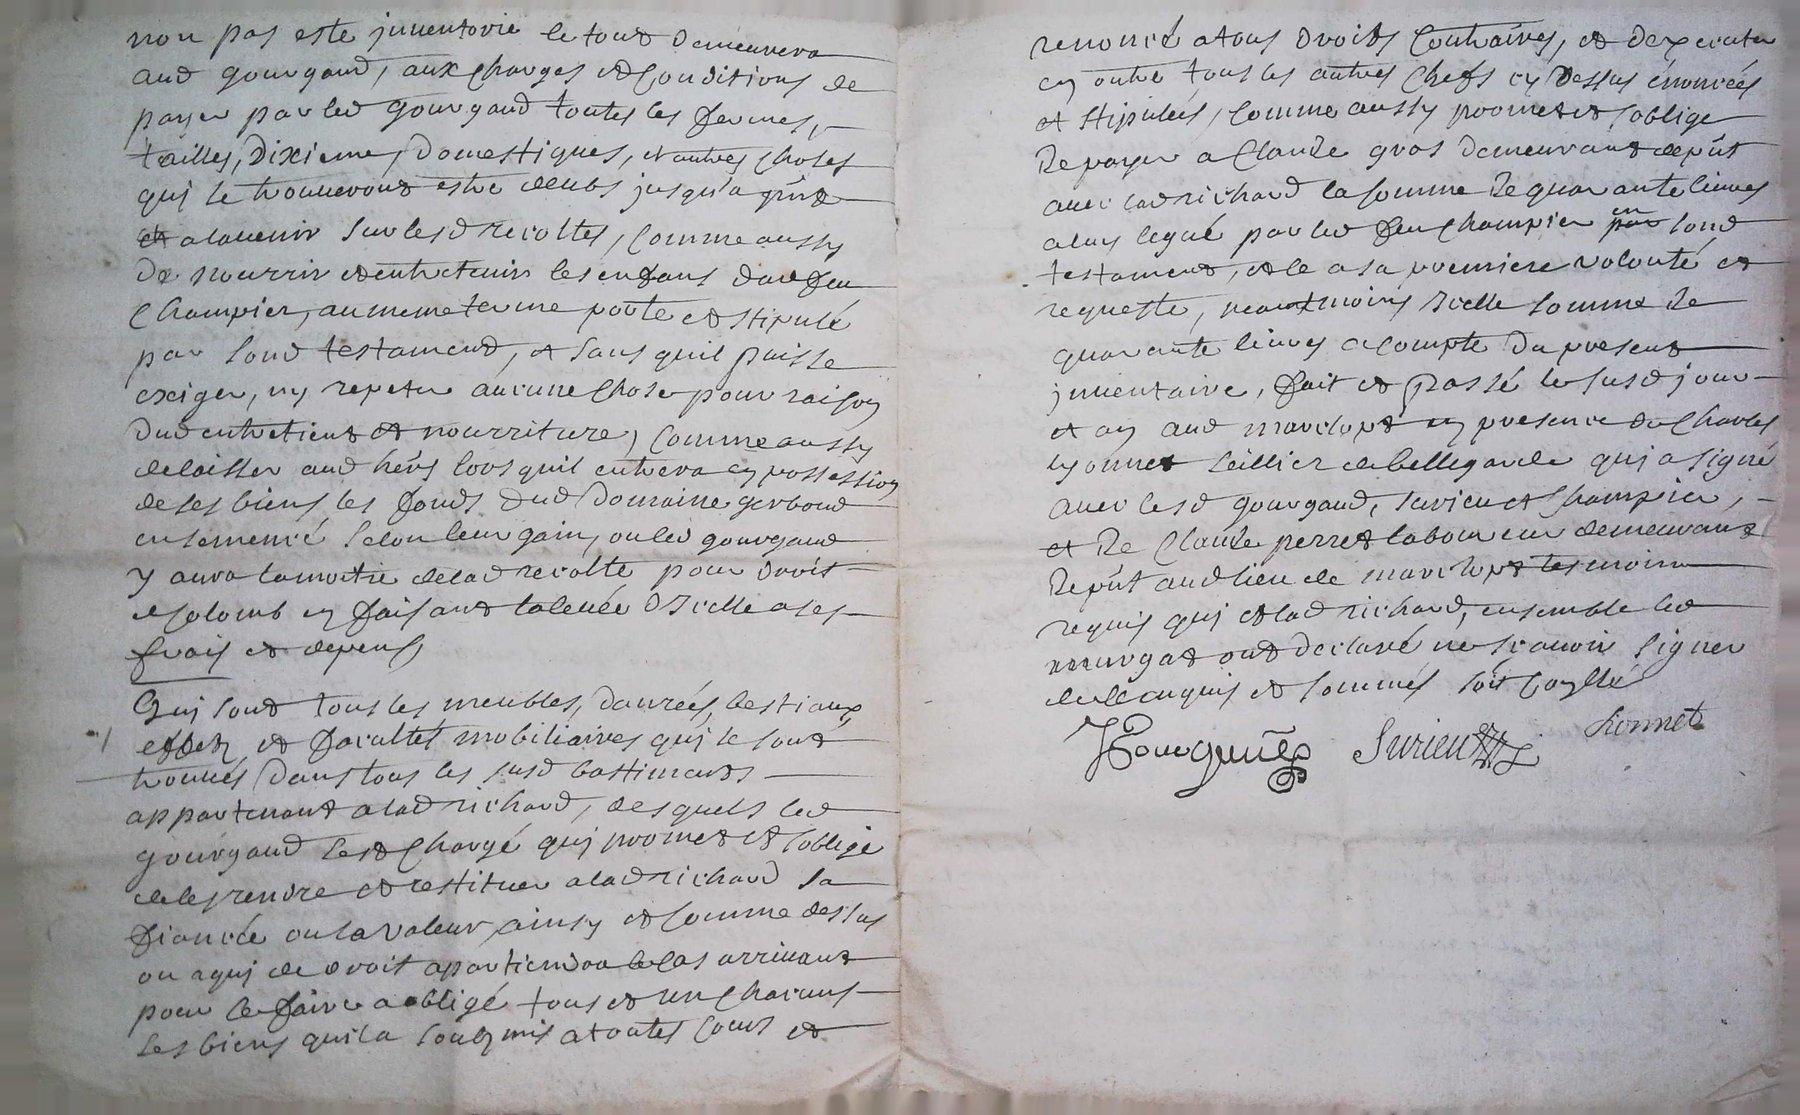 non pas esté jnuentorié le tout demeurera
aud gourgaud, aux charges et Conditions de
payer par led gourgaud toutes les fermes,
tailles, dixieme, domestiques, et autres choses
quj se trouueront estre deubs jusqu'a pnt
et alauenir sur lesd recoltes, Comme aussy
de nourrir et entretenir les enfans dud feu
Champier, au meme terme porté et stipulé
par sond testament, et sans quil puisse
exiger, ny repeter aucune chose pour raison
dud entretient et nourriture, Comme aussy
delaisser aud hers lors quil entrera en possession
de ses biens les fonds dud Domaine gerboud
ensemencé selon leur gain, ou led gourgaud
y aura la moitié delad recolte pour droit
de Colomb en faisant la leuée d'Icelle a ses
frais et depens
Quj sont tous les meubles, danrées, bestiaux,
effets et facultés mobiliaires quj se sont
trouués dans tous les susd bastiments
appartenant a lad richard, desquels led
gourgaud s'est chargé quj promet et s'oblige
de les rendre et restituer a lad richard sa
fiancée ou la valeur, ainsy et Comme dessus
ou a quj de droit apartiendra le Cas arriuant
pour ce faire a obligé tous et un chacuns
ses biens quil a soubmis a toutes Cours et
renoncé a tous droits Contraires, et d'executer
en outre tous les autres chefs cy dessus énoncées
et stipulés, Comme aussy promet et s'oblige
de payer a Claude gros demeurant de pnt
auec lad richard la somme de quarante liures
a luy legué par led feu Champier en sond
testament, et ce a sa premiere volonté et
requeste, neantmoins Icelle somme de
quarante liures a compte du present
jnuentaire, fait et passé les susd jour
et an aud marclopt en presence de Charles
lyonnet sellier de bellegarde quj a signé
auec lesd gourgaud, surieu et Champier,
et de Claude perret laboureur demeurant
de pnt aud lieu de marclopt tesmoins
requis quj et lad richard, ensemble led
murgat ont declaré ne scauoir signer
de ce enquis et sommés soit Controllé
Gourgaud Surieu Lionnet